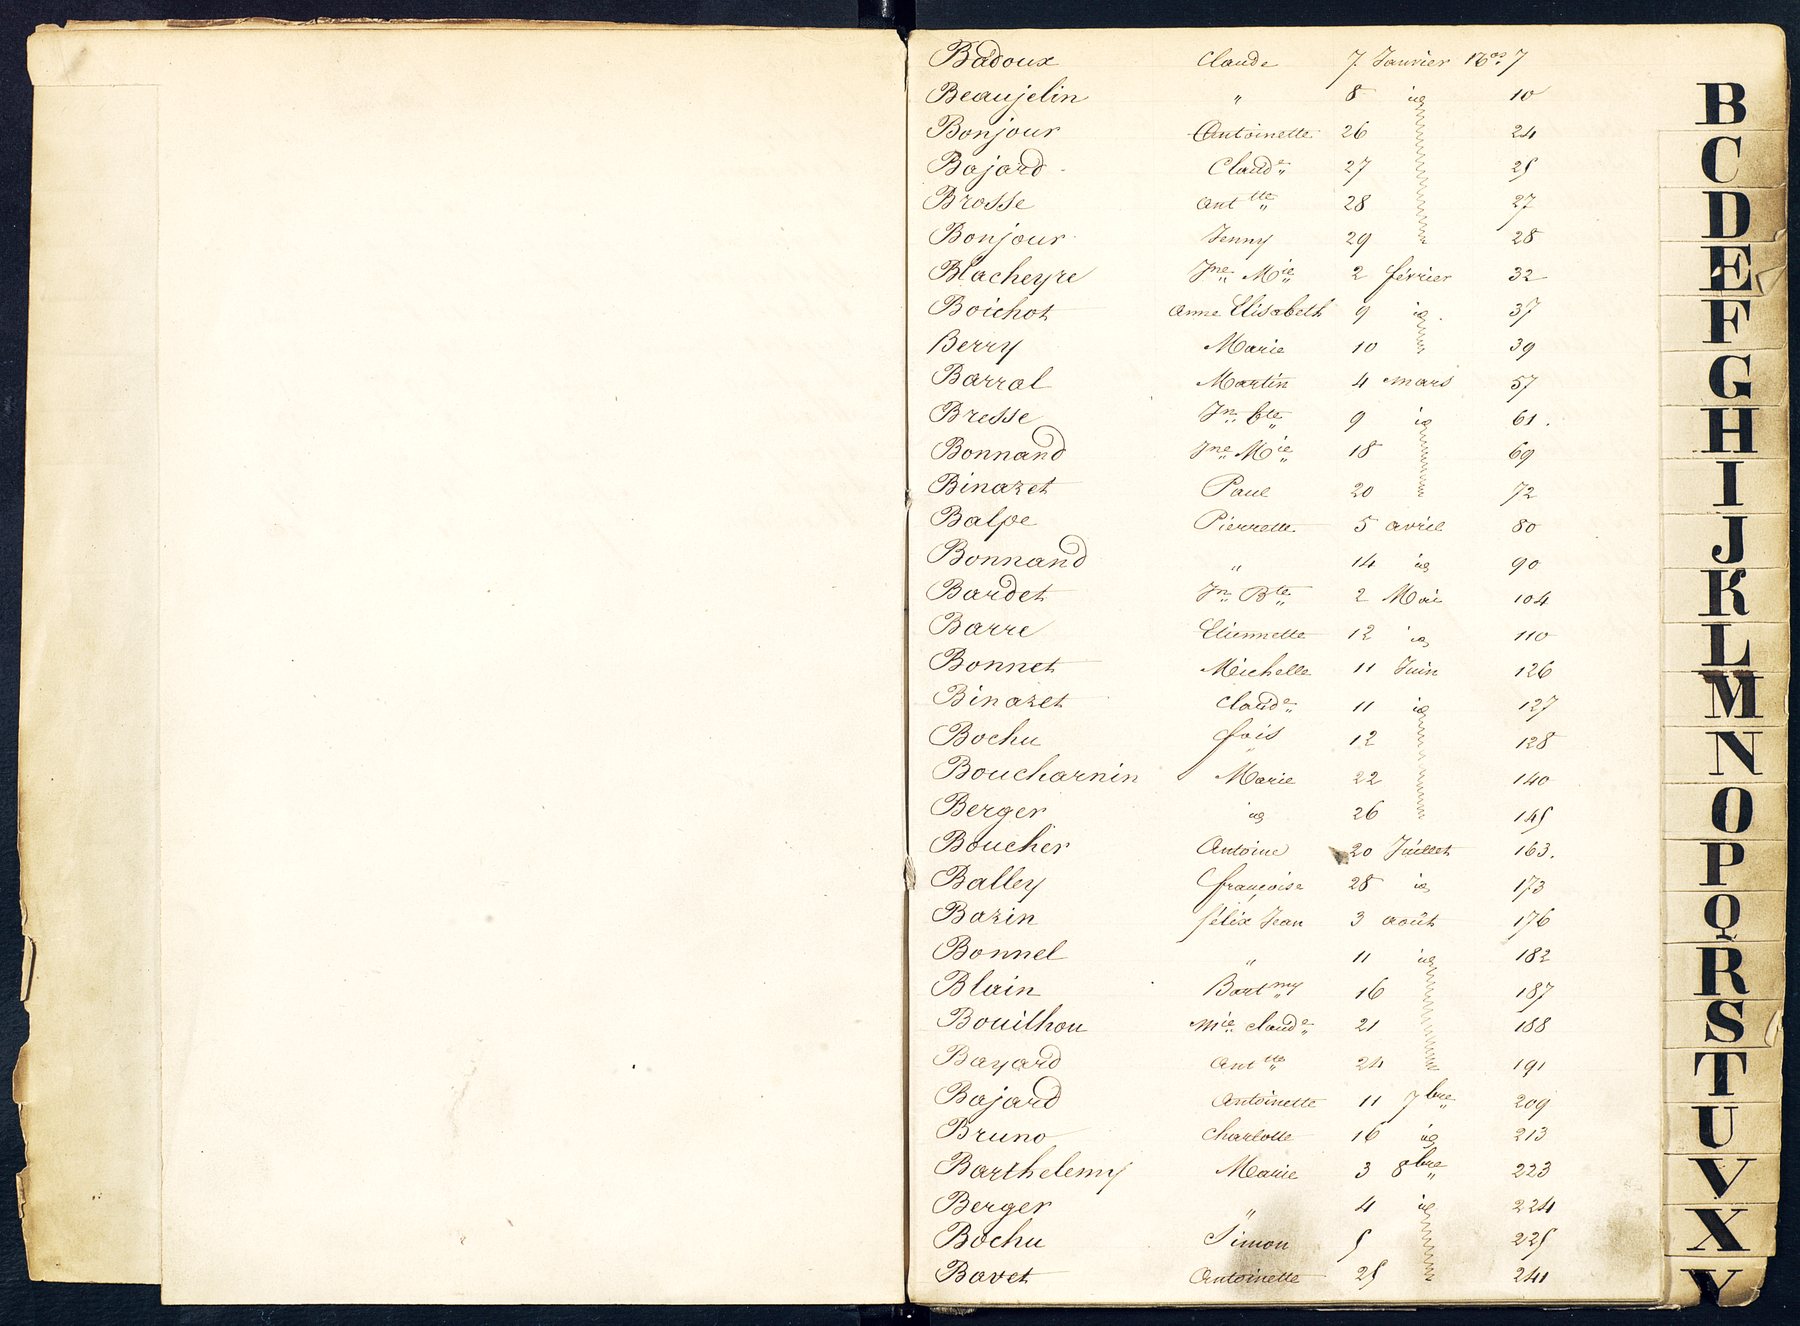 Badoux Claude 7 Janvier Nos 7
Beaujelin " 8 id 10
Bonjour Antoinette 26 24
Bajard Claude 27 25
Brosse Anttte 28 27
Bonjour Jenny 29 28
Blacheyre Jne Mie 2 février 32
Boichot Anne Elisabeth 9 id 37
Berry Marie 10 39
Barral Martin 4 mars 57
Bresse Jn Bte 9 id 61
Bonnand Jne Mie 18 69
Binazet Paul 20 72
Balpe Pierrette 5 avril 80
Bonnand " 14 id 90
Bardet Jn Bte 2 Mai 104
Barre Etiennette 12 id 110
Bonnet Michelle 11 Juin 126
Binazet Claude 11 id 127
Bochu fois 12 128
Boucharnin Marie 22 140
Berger id 26 145
Boucher Antoine 20 Juillet 163.
Balley françoise 28 id 173
Bazin félix Jean 3 août 176
Bonnel " 11 id 182
Blain Bartmy 16 187
Bouilhou Mie Claude 21 188
Bayard Anttte 24 191
Bajard Antoinette 11 7bre 209
Bruno Charlotte 16 id 213
Barthelemy Marie 3 8bre 223
Berger " 4 id 224
Bochu Simon 5 225
Bavet Antoinette 25 241
B
C
D
E
F
G
H
I
J
K
L
M
N
O
P
Q
R
S
T
U
V
X
Y